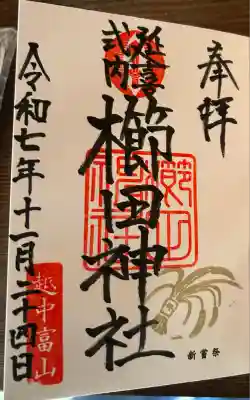 奉拝
延喜
式内
櫛田神社
令和七年十一月二十四日
越中富山
新嘗祭